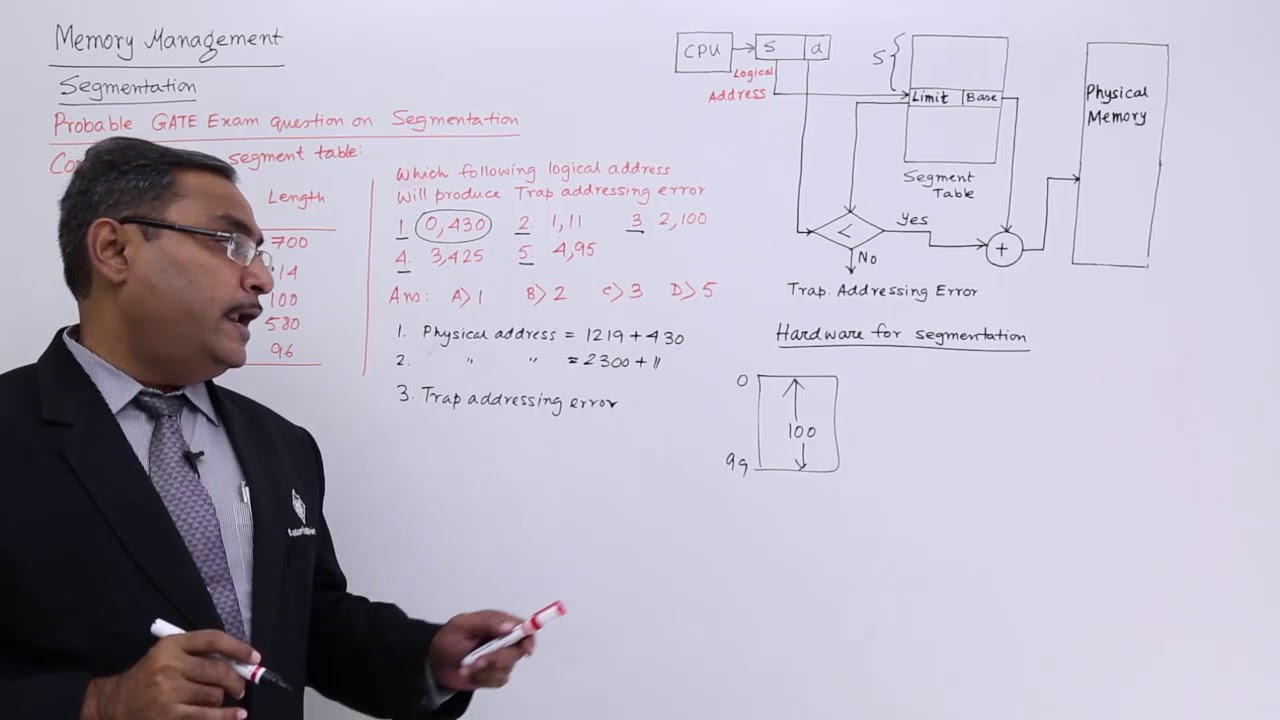 Memory Management
Segmentation
Probable GATE Exam question on Segmentation
segment table:
Length
700
14
100
580
96
Which following logical address
Will produce Trap addressing error
1. 0,430 2. 1,11 3. 2,100
4. 3,425 5. 4,95
Ans: A> 1 B> 2 C> 3 D> 5.
1. Physical address = 1219 + 430
2. " " = 2300 + 11
3. Trap addressing error
CPU
S d
Logical
Address
S
Limit Base
Segment
Table
Physical
Memory
<
Yes
No
+
Trap: Addressing Error
Hardware for segmentation
0
100
99